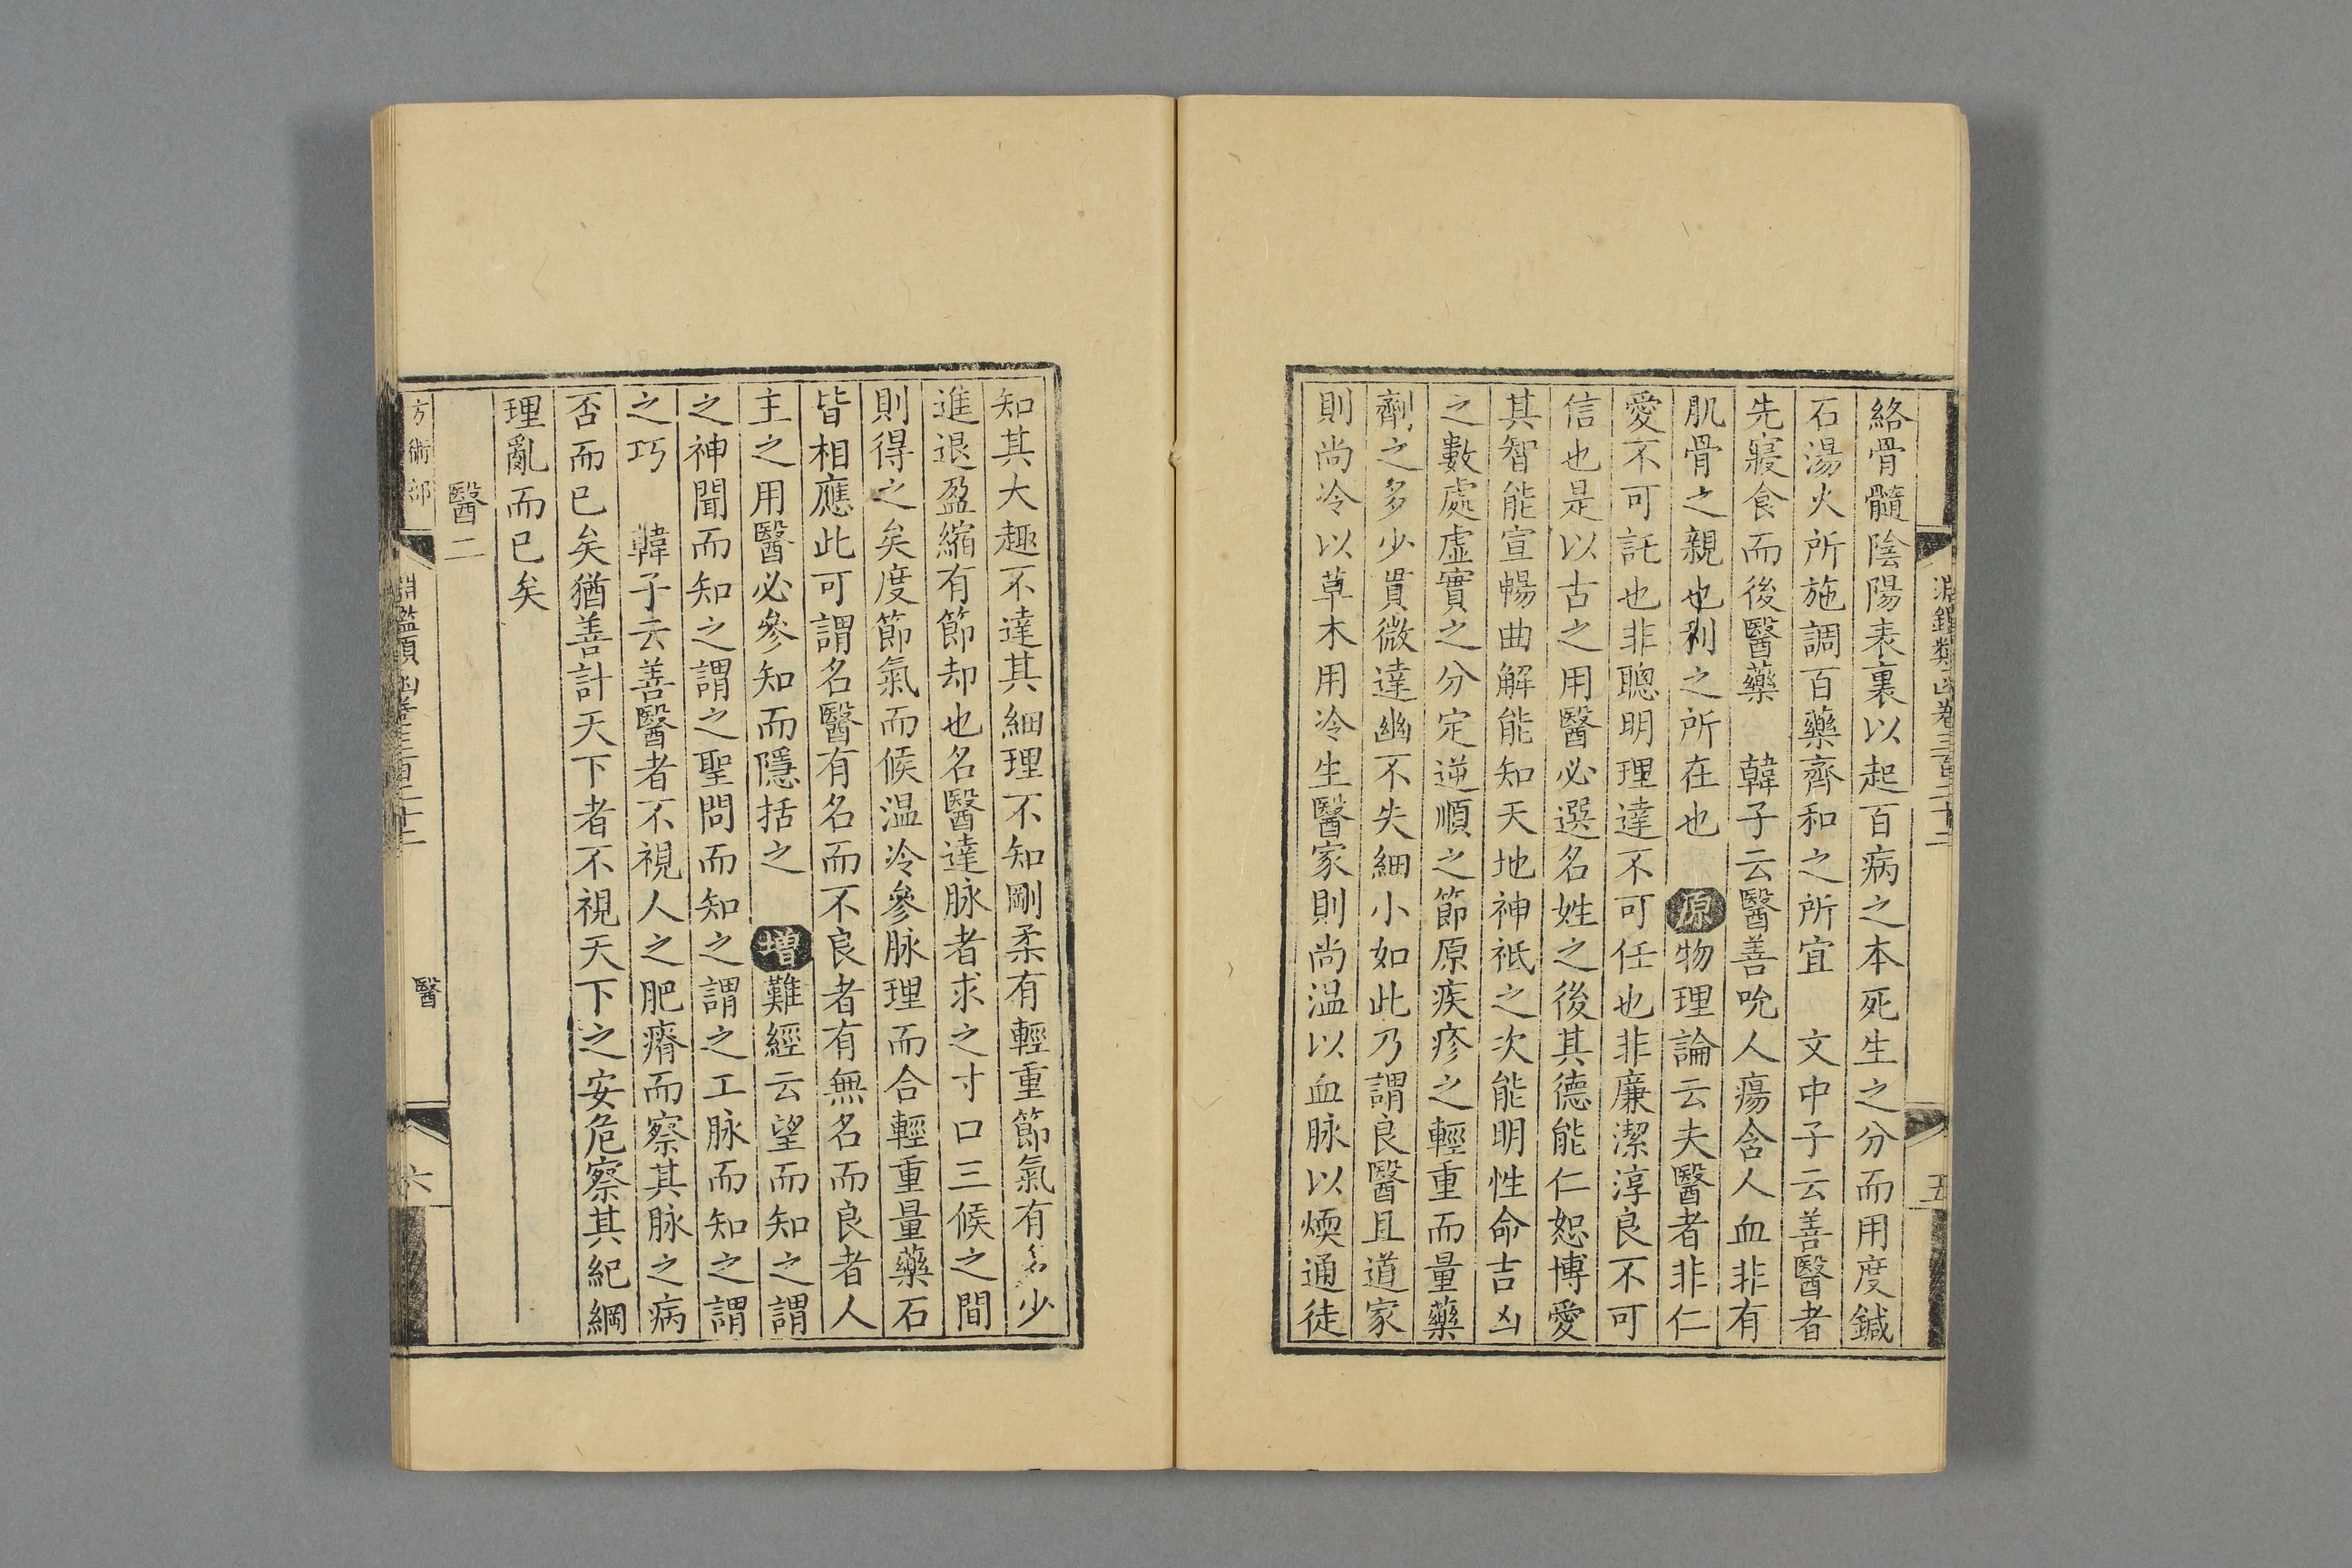 淵鑑類函卷三百二十二
五
絡骨髓陰陽表裏以起百病之本死生之分而用度鍼
石湯火所施調百藥齊和之所宜　文中子云善醫者
先寢食而後醫藥　韓子云醫善吮人瘍含人血非有
肌骨之親也利之所在也　原物理論云夫醫者非仁
愛不可託也非聰明理達不可任也非廉潔淳良不可
信也是以古之用醫必選名姓之後其德能仁恕博愛
其智能宣暢曲解能知天地神祇之次能明性命吉凶
之數處虛實之分定逆順之節原疾疹之輕重而量藥
劑之多少貫微達幽不失細小如此乃謂良醫且道家
則尚冷以草木用冷生醫家則尚温以血脉以煗通徒
知其大趣不達其細理不知剛柔有輕重節氣有多少
進退盈縮有節却也名醫達脉者求之寸口三候之間
則得之矣度節氣而候温冷參脉理而合輕重量藥石
皆相應此可謂名醫有名而不良者有無名而良者人
主之用醫必參知而隱括之　增難經云望而知之謂
之神聞而知之謂之聖問而知之謂之工脉而知之謂
之巧　韓子云善醫者不視人之肥瘠而察其脉之病
否而已矣猶善計天下者不視天下之安危察其紀綱
理亂而已矣
醫二
方術部
淵鑑類函卷三百二十二
醫
六